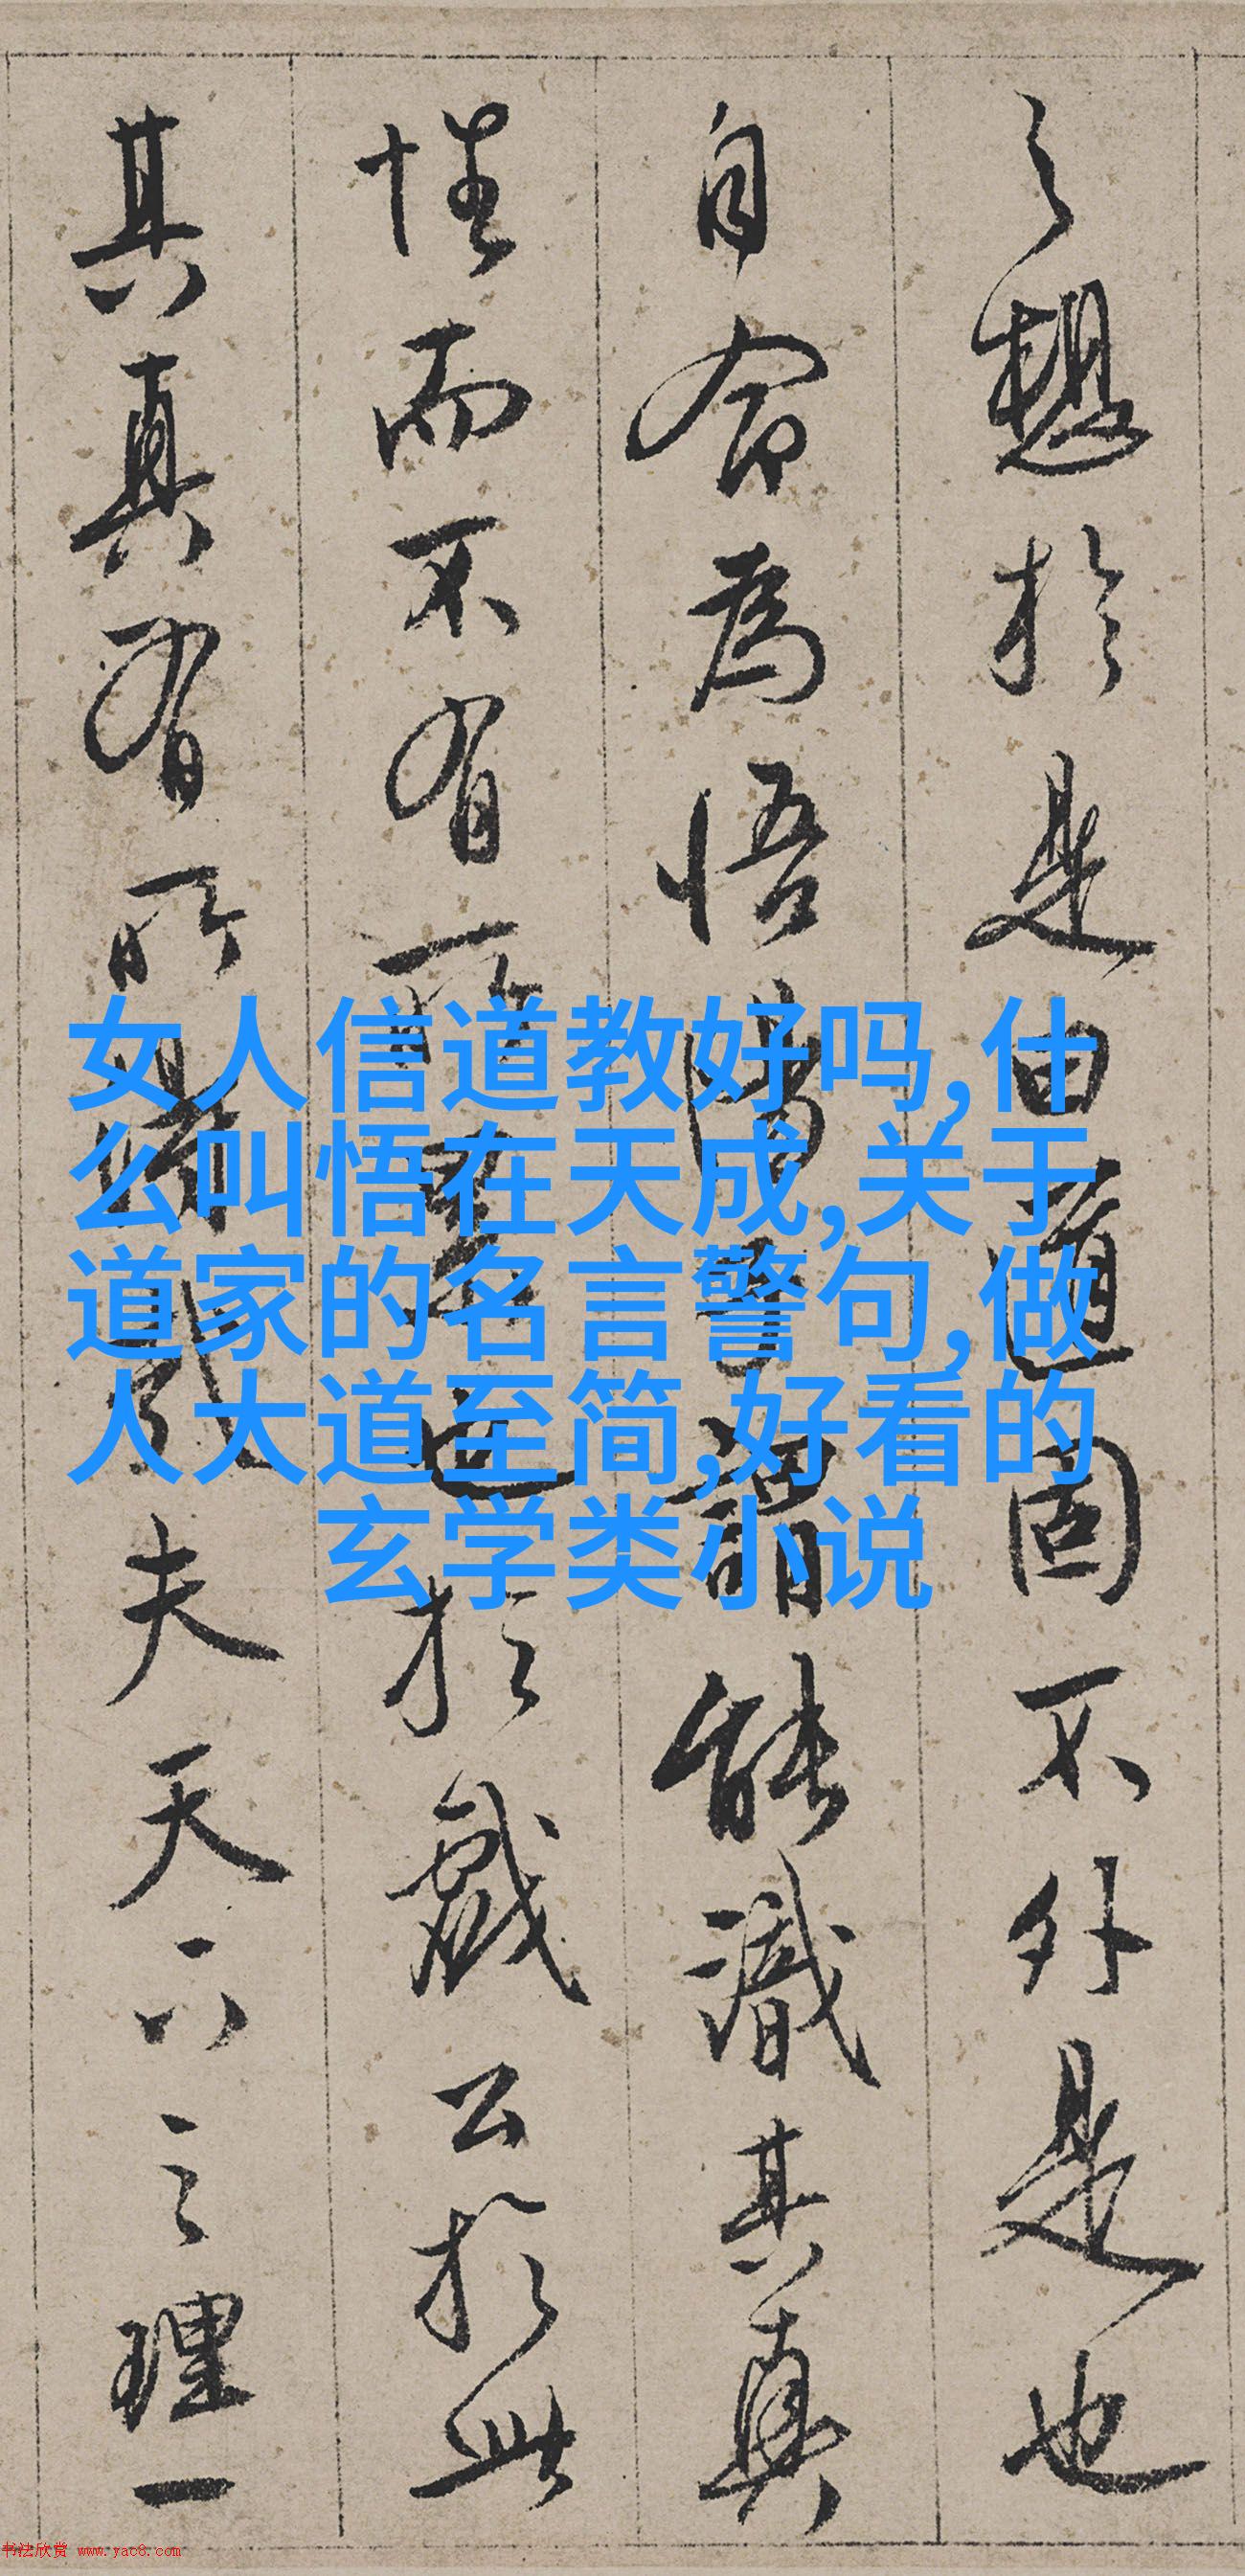 之想於是由道固不外是也
自命為悟
能識其真
性而不有
於戲公於此
其真有所
夫天下之理一
女人信道教好吗,什
么叫悟在天成,关于
道家的名言警句,做
人大道至简,好看的
玄学类小说
书法欣赏 www.yac8.com